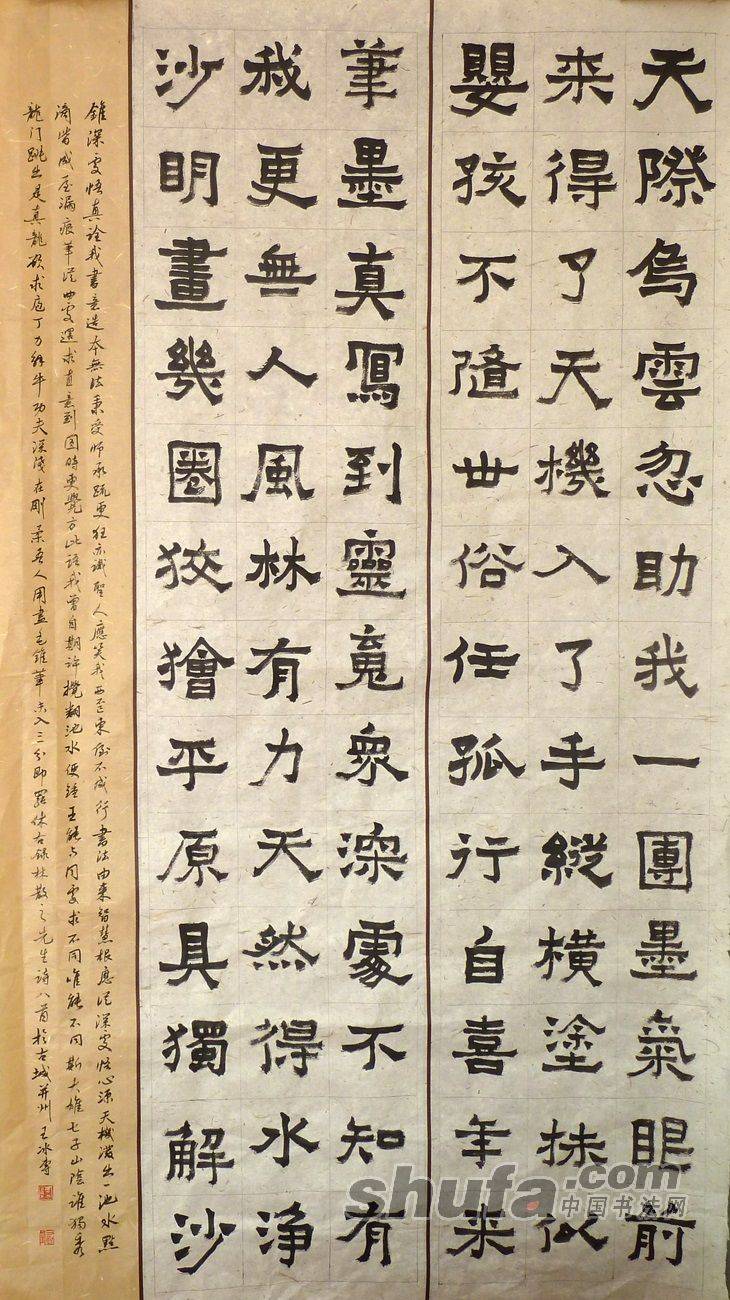 天際烏雲忽助我一團墨氣眼前
来得了天機入了手縱横塗抹似
嬰孩不隨世俗任孤行自喜年来
筆墨真寫到靈魂最深處不知有
我更無人風林有力天然得水浄
沙明畫幾圈狡獪平原具獨解沙
錐深處悟真詮我書意造本無法秉受師承疏更狂亦識聖人應笑我西歪東倒不成行書法由来智慧根應從深處悟心源天機潑出一池水點
滴皆成屋漏痕筆從曲處還求直意到圓時更覺方此語我曾自期許攪翻池水便鍾王能於同處求不同唯能不同斯大雄七子山陰誰獨秀
龍门跳出是真龍欲求庖丁力解牛功夫深淺在剛柔吾人用盡毛錐筆未入三分即罷休右錄林散之先生詩八首於古城并州王冰書
shufa.com
中国书法网